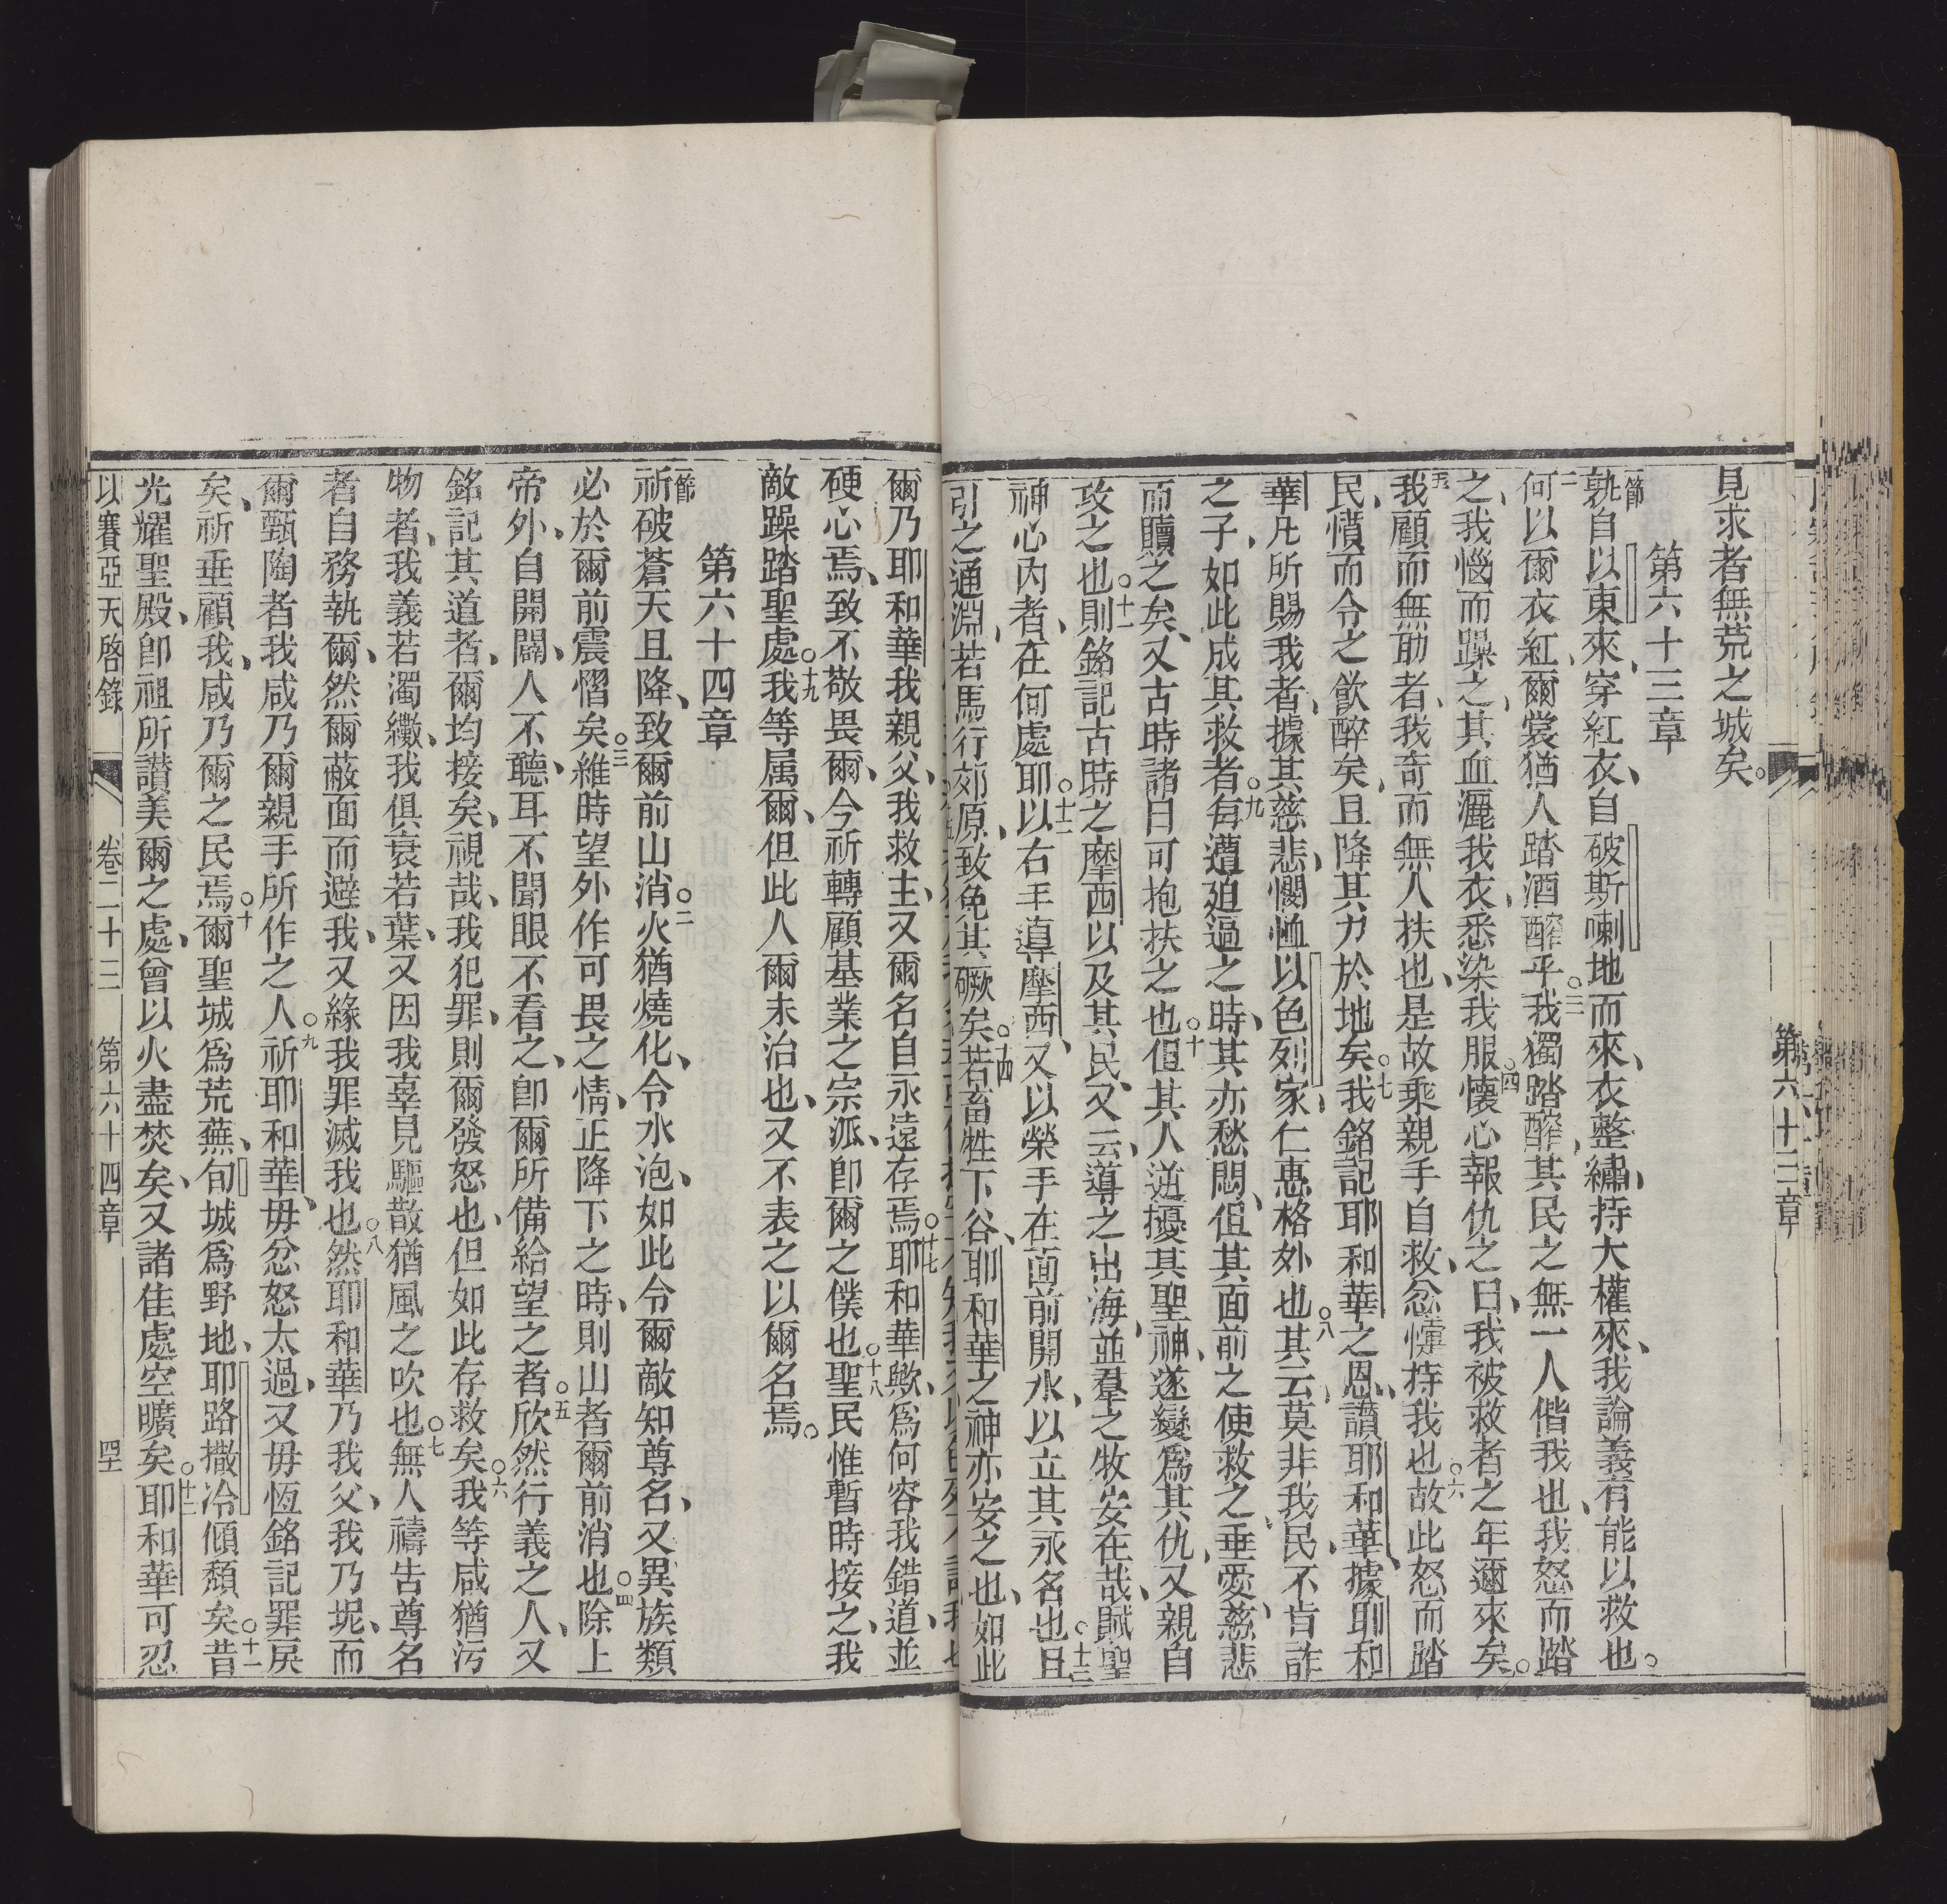 見求者無荒之城矣。
第六十三章
節孰自以東來、穿紅衣、自破斯喇地而來、衣整繡、持大權來、我論義有能以救也。
二何以爾衣紅、爾裳猶人踏酒醡乎。三我獨踏醡、其民之無一人偕我也、我怒而踏
之、我惱而躁之、其血灑我衣、悉染我服。四懷心報仇之日、我被救者之年邇來矣。
五我顧而無助者、我奇而無人扶也、是故乘親手自救、忿懥持我也。六故此怒而踏
民、憤而令之飲醉矣、且降其力於地矣。七我銘記耶和華之恩、讚耶和華、據耶和
華凡所賜我者、據其慈悲、憫恤以色列家、仁惠格外也。八其云、莫非我民、不肯詐
之子、如此成其救者。九每遭廹過之時、其亦愁悶、伹其面前之使救之、垂愛、慈悲
而贖之矣、又古時諸日可抱扶之也。十伹其人逆擾其聖神、遂變爲其仇、又親自
攻之也。十一則銘記古時之摩西以及其民、又云、導之出海、並羣之牧安在哉、賦聖
神心內者、在何處耶。十二以右手導摩西、又以榮手在面前開水、以立其永名也。十三且
引之通淵、若馬行郊原、致免其礮矣。十四若畜牲下谷、耶和華之神亦安之也、如此
第六十三章
爾乃耶和華我親父、我救主、又爾名自永遠存焉。十七耶和華歟、爲何容我錯道、並
硬心焉、致不敬畏爾、今祈轉顧基業之宗派、卽爾之僕也。十八聖民惟暫時接之、我
敵躁踏聖處。十九我等属爾、但此人爾未治也、又不表之以爾名焉。
第六十四章
節祈破蒼天且降、致爾前山消。二火猶燒化、令水泡、如此令爾敵知尊名、又異族類
必於爾前震慴矣。三維時望外作可畏之情、正降下之時、則山者爾前消也。四除上
帝外、自開闢、人不聽、耳不聞、眼不看之、卽爾所備給望之者。五欣然行義之人、又
銘記其道者、爾均接矣、視哉、我犯罪、則爾發怒也、但如此存救矣。六我等咸猶污
物者、我義若濁纔、我俱衰若葉、又因我辜見驅散猶風之吹也。七無人禱告尊名
者自務執爾、然爾蔽面而避我、又緣我罪滅我也。八然耶和華乃我父、我乃坭、而
爾甄陶者、我咸乃爾親手所作之人。九祈耶和華毋忿怒太過、又毋恆銘記罪戾
矣、祈垂顧我、咸乃爾之民焉。十爾聖城爲荒蕪、旬城爲野地、耶路撒冷傾頽矣。十一昔
光耀聖殿、卽祖所讃美爾之處、曾以火盡焚矣、又諸佳處空曠矣。十二耶和華可忍
以賽亞天啓錄 卷二十三 第六十四章